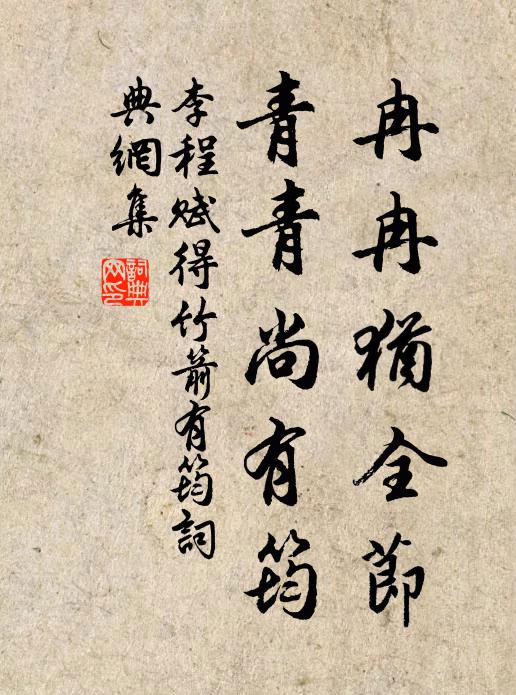 冉冉猶全節
青青尚有筠
李程賦得竹箭有筠詞
典網集
詞典網印